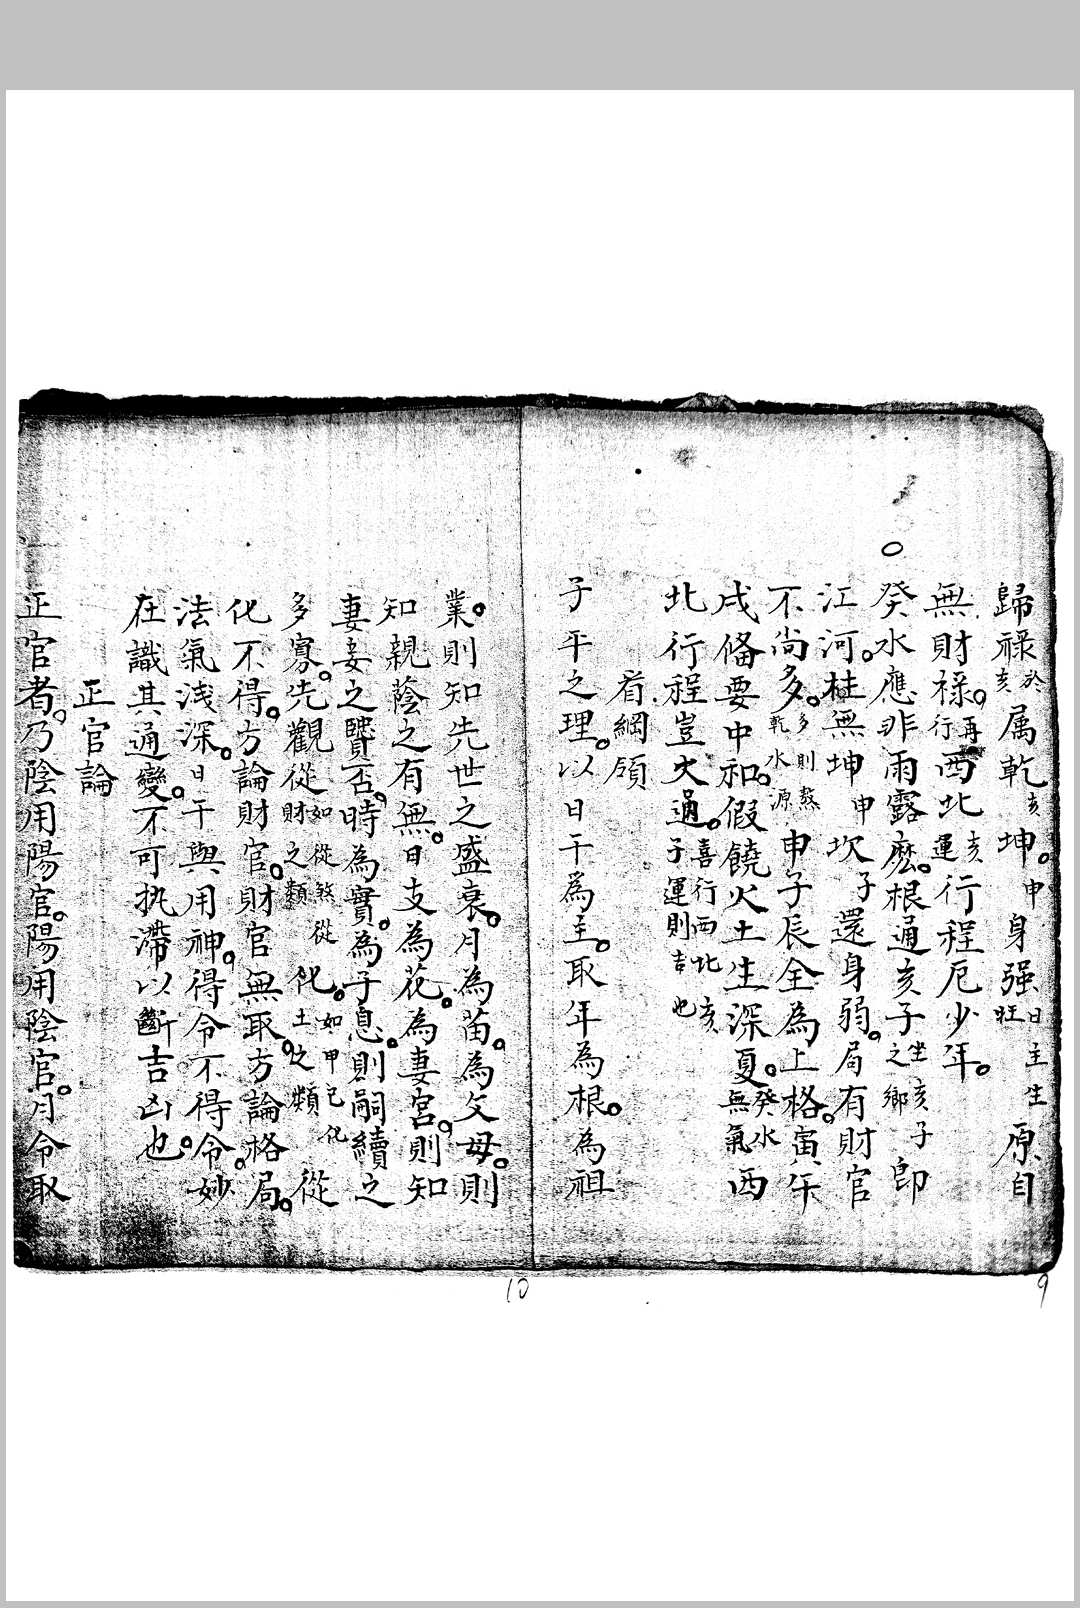 歸祿於亥属乾亥坤。申身强日主生旺原自
無財祿。再行西北亥運行程厄少年。
○癸水應非雨露麽。根通亥子坐亥子之鄉卽
江河。柱無坤申坎子還身弱。局有財官
不尚多。多則熬乾水源申子辰全為上格。寅午
戌備要中和。假饒火土生深夏。癸水無氣西
北行程豈大過。喜行西北亥子運則吉也
看綱領
子平之理。以日干為主。取年為根。為祖
業。則知先世之盛衰。月為苗。為父母。則
知親蔭之有無。日支為花。為妻宮。則知
妻妾之賢否。時為實。為子息。則嗣續之
多寡。先觀從如從煞從財之類化。如甲己化土之類從
化不得。方論財官。財官無取。方論格局。
法氣淺深。日干與用神。得令不得令。妙
在識其通變。不可执滯以斷吉凶也。
正官論
正官者。乃陰用陽官。陽用陰官。月令取
10
9